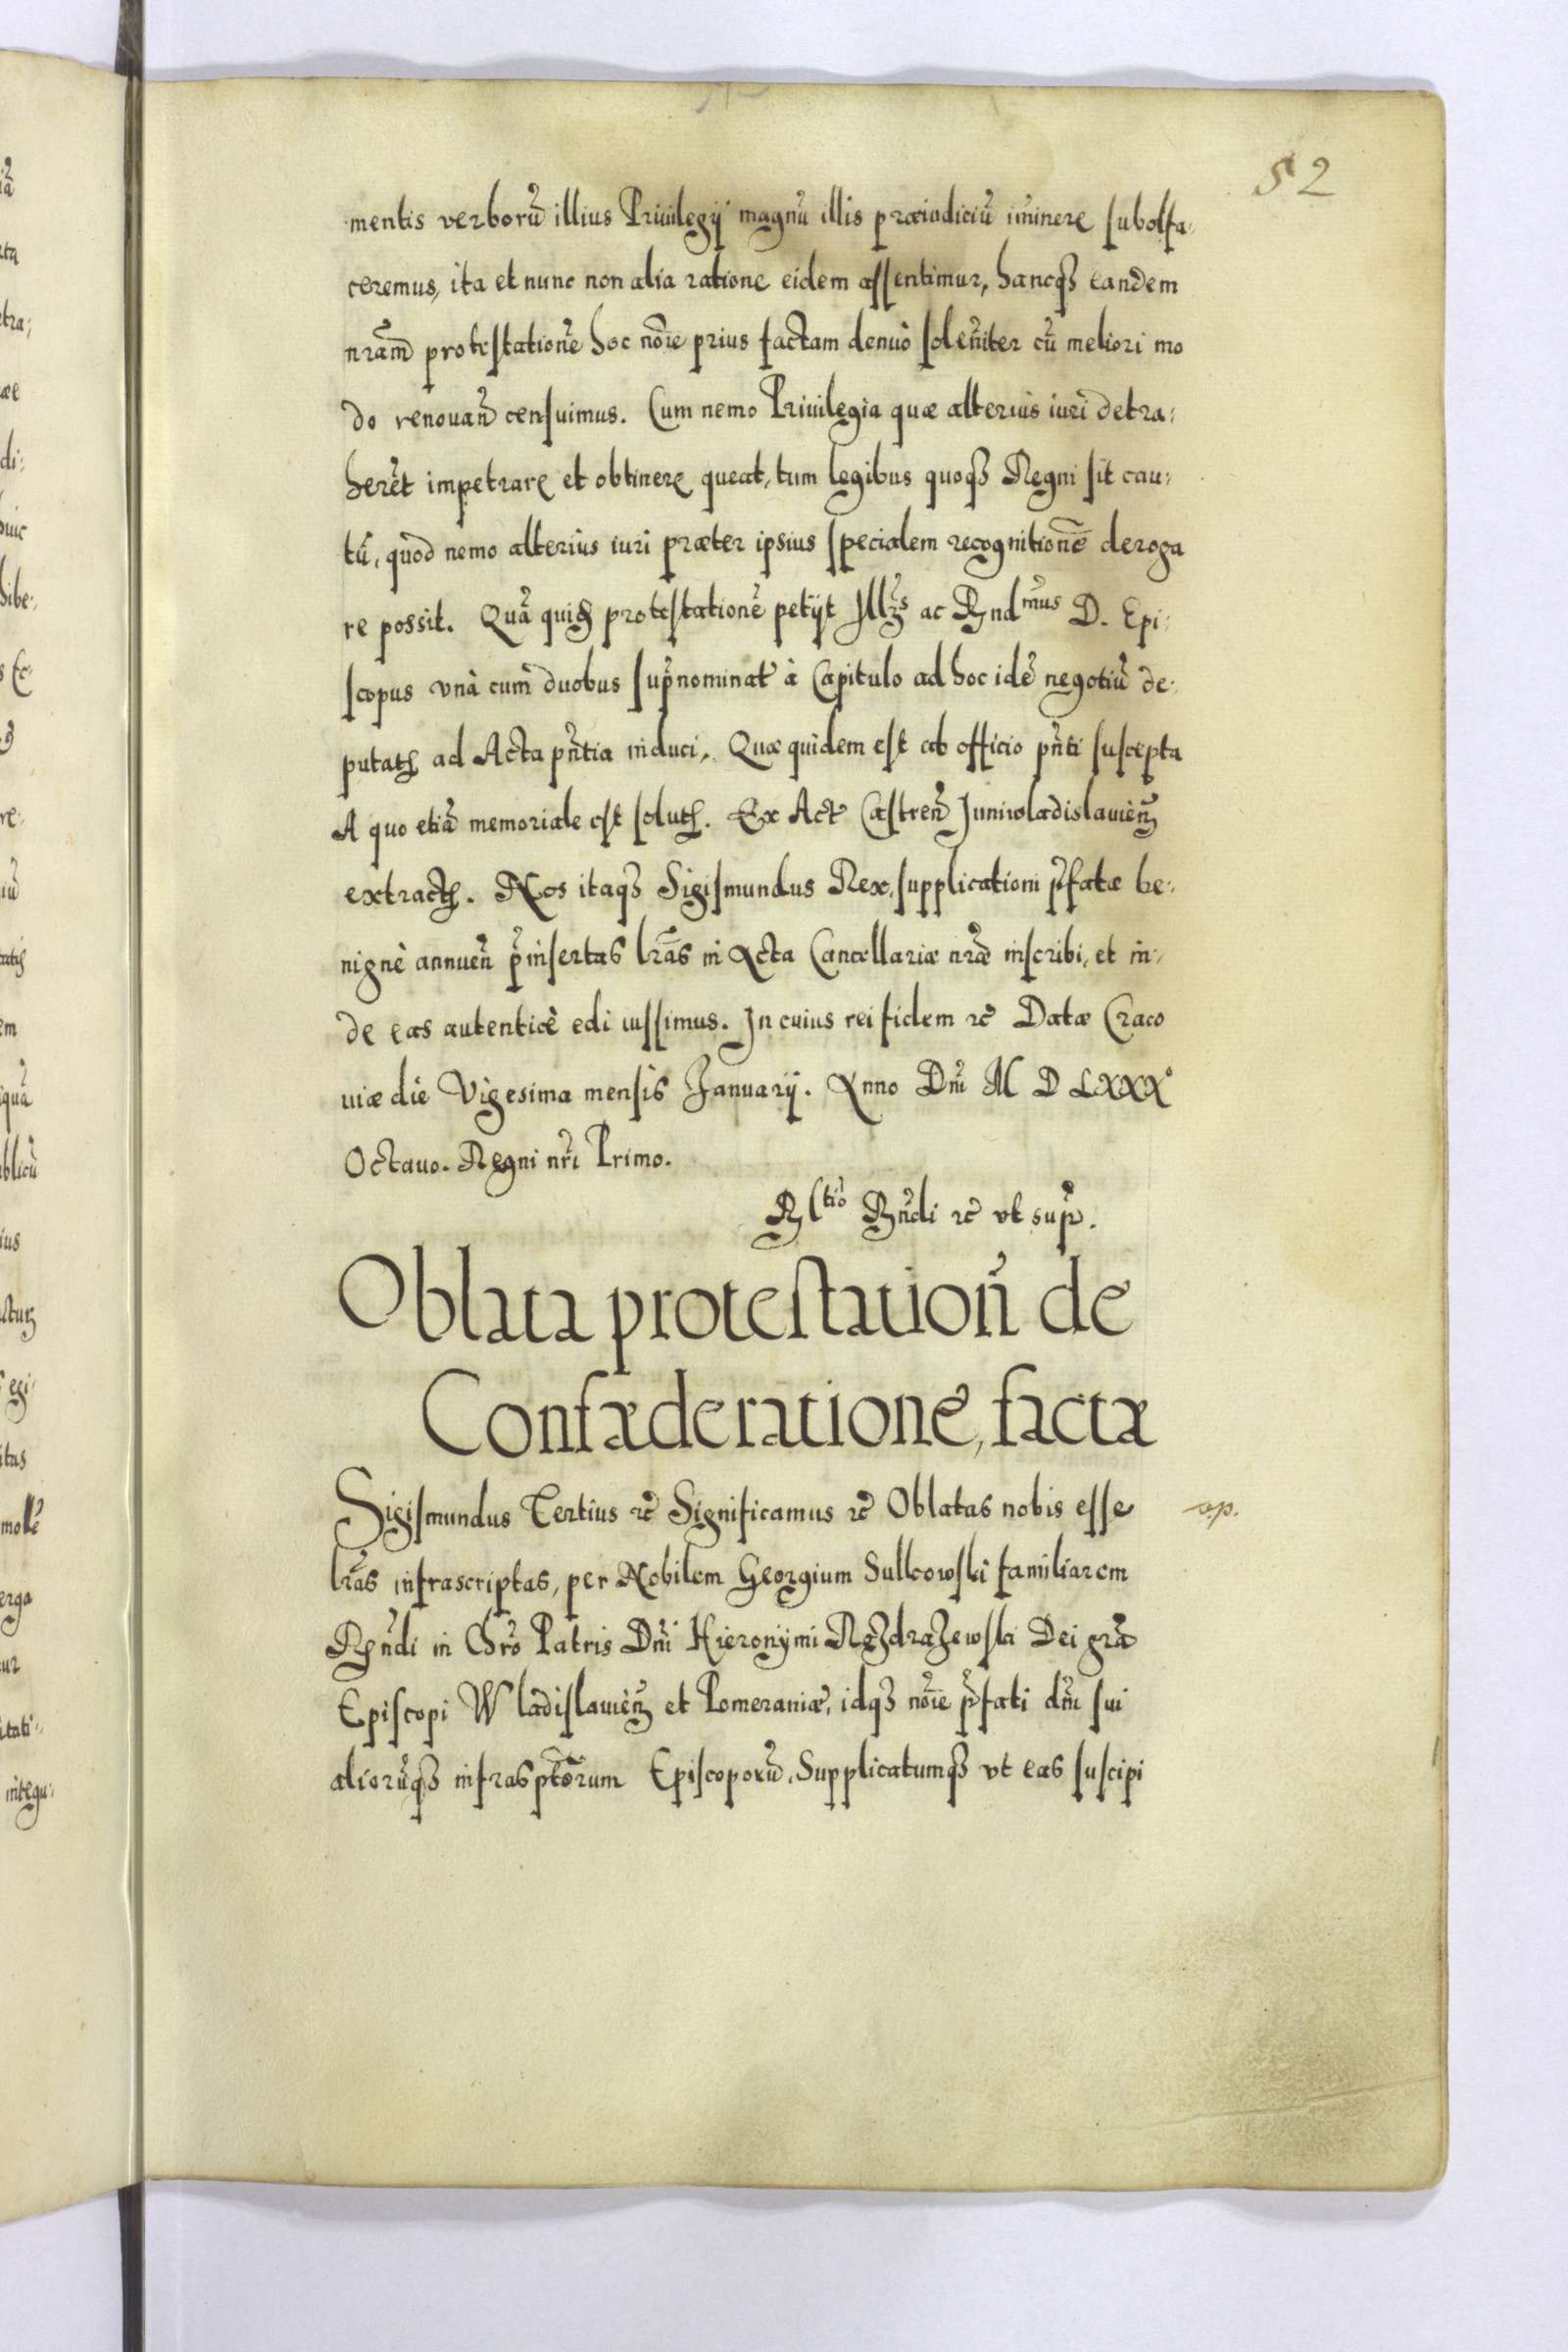 52
mentis verborũ illius Priuilegij magnũ illis præiudiciũ im̃inere subolfa-
ceremus, ita et nunc non alia ratione eidem assentimur, hancqȝ eandem
nr̃am protestationẽ hoc nõie prius factam denuò solẽniter cũ meliori mo
do renouañ censuimus. Cum nemo Priuilegia quæ alterius iuri detra-
herẽt impetrare et obtinere queat, tum legibus quoqȝ Regni sit cau-
tũ, quòd nemo alterius iuri præter ipsius specialem recognitionẽ deroga
re possit. Quã quiđ protestationẽ petijt Illr̃s ac Rndmus D. Epi-
scopus vnà cum duobus sup̃nominat̃ à Capitulo ad hoc idẽ negotiũ de-
putatꝭ ad Acta pñtia induci. Quæ quidem est ab officio pñti suscepta
A quo etiã memoriale est solutꝭ. Ex Act̃ Castreñ Juniwladislauieñ
extractꝭ. Nos itaqȝ Sigismundus Rex, supplicationi p̃fatæ be-
nignè annueñ p̃insertas lr̃as in Acta Cancellariæ nr̃æ inscribi, et in-
de eas autenticè edi iussimus. In cuius rei fidem rc̃ Datæ Craco
uiæ die Vigesima mensis Januarij. Anno Dñi M D LXXXº
Octauo. Regni nr̃i Primo.
Rltio Rñdi rc̃ vt sup̃.
Oblata protestationĩ de
Confæderatione, factæ
Sigismundus Tertius rc̃ Significamus rc̃ Oblatas nobis esse
lr̃as infrascriptas, per Nobilem Georgium Sulkowski familiarem
Rñdi in Chrõ Patris Dñi Hieronymi Rozdrazewski Dei grã
Episcopi Wladislauieñ et Pomeraniæ, idqȝ nõie p̃fati dñi sui
aliorũqȝ infrasptõrum Episcoporũ, Supplicatumqȝ vt eas suscipi